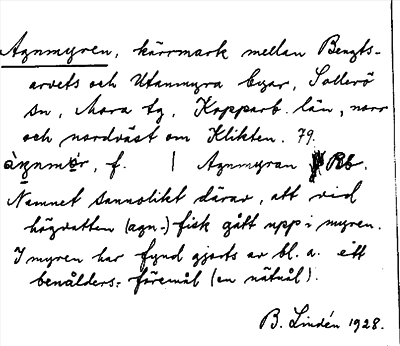 Agnmyren, kärrmark mellan Bengts-
arvets och Utanmyra byar, Sollerö
sn, Mora tg, Kopparb. län, norr
och nordväst om Klikten. 79.
àgnmör, f. | Agnmyran Rb.
Namnet sannolikt därav, att vid
högvatten (agn-) fisk gått upp i myren.
I myren har fynd gjorts av bl. a. ett
benålders-föremål (en nätnål).
B. Lindén 1928.